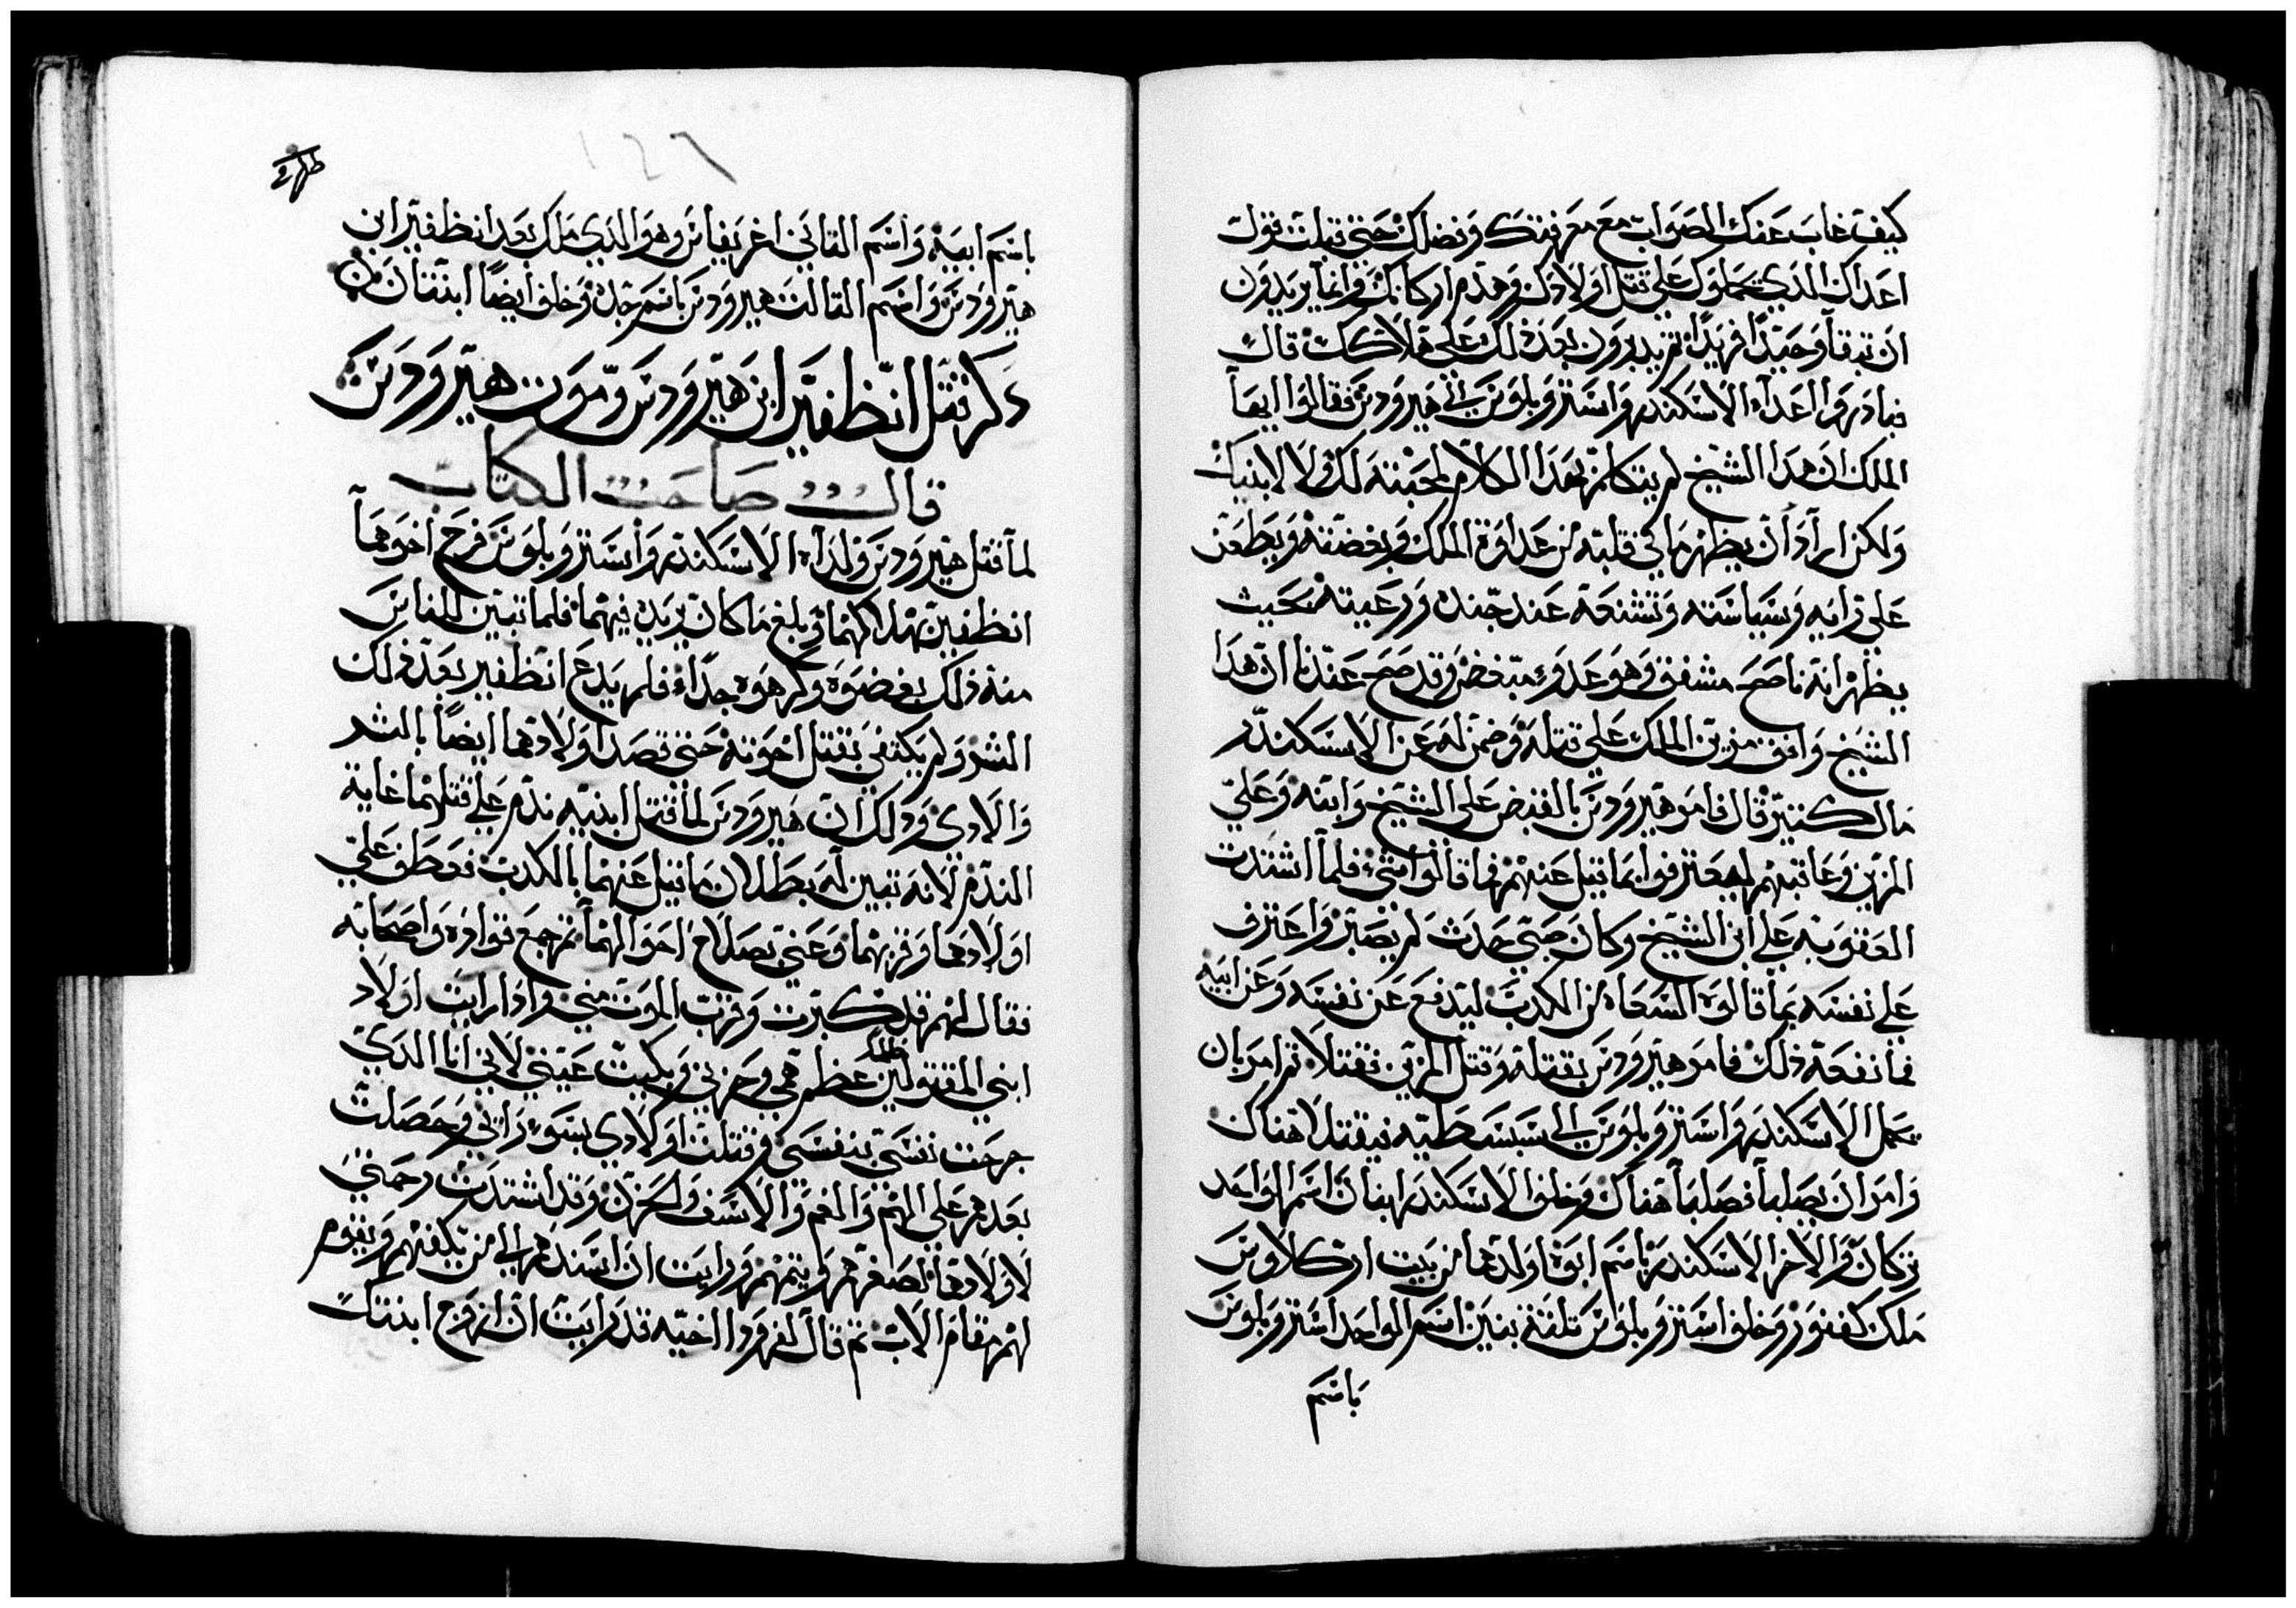 كيف غاب عنك الصواب مع معرفتك وفضلك حتى قبلت قول
اعداك الذي حملوك علي قتل اولادك وهدم اركانك وانما يريدون
ان تبقا وحيدًا فريدًا ثم يدبرون بعد ذلك علي هلاكك قال
فبادروا اعداء الاسكندر واستروبلوس الي هيرودس فقالوا ايها
الملك ان هدا الشيخ لم يتكلم بهدا الكلام لمحبته لك ولا لابنيك
ولكن اراد ان يظهر ما في قلبه من عداوة الملك وبغضته ويطعن
علي رايه وسياسته وتشنعه عند جنده ورعيته بحيث
يظهر انه ناصح مشفق وهو عدو مبغض وقد صح عندنا ان هدا
الشيخ وافق مزين الملك علي قتله وضمن له عن الاسكندر
مال كتير قال فامر هيرودس بالقبض علي الشيخ وابنه وعلي
المزين وعاقبهم ليعترفوا بما قيل عنهم فما قالوا شي فلما اشتدت
العقوبه علي ابن الشيخ وكان صبي حدث لم يصبر واعترف
علي نفسه بما قالوه السعاه من الكدب ليدفع عن نفسه وعن ابيه
فما نفعه ذلك فامر هيرودس بقتله وقتل المزين فقتلا تم امر بان
يحمل الاسكندر واستروبلوس الي سبسطيه فيقتلا هناك
وامر ان يصلبا فصلبا هناك وخلف الاسكندر ابنان اسم الواحد
تركان والاخر الاسكندر باسم ابوه اولدهما من بيت اركلاوس
ملك كفتور وخلف استروبلوس تلتة بنين اسم الواحد استروبلوس
باسم
١٢٦
باسم ابيه واسم التاني اغريفاس وهو الدي ملك بعد انظفيتر ابن
هيرودس واسم التالت هيرودس باسم جده وخلف ايضًا ابنتان
دكر قتل انظفيتر ابن هيرودس وموت هيرودس
قال صاحب الكتاب
لما قتل هيرودس ولداه الاسكندر واستروبلوس فرح اخوهما
انظفيتر بهلاكهما وبلغ ما كان يريد فيهما فلما تبين للناس
منه ذلك بغضوه وكرهوه جدًا فلم يدع انظفيتر بعد ذلك
الشر ولم يكتفي بقتل اخوته حتى قصد اولادهما ايضًا بالشر
والادي ودلك ان هيرودس لما قتل ابنيه ندم علي قتلهما غاية
الندم لانه تبين له بطلان ما قيل عنهما بالكدب فعطف علي
اولادهما وقربهما وعني بصلاح احوالهما تم جمع قواده واصحابه
فقال لهم قد كبرت وقرب الموت مني وادا رايت اولاد
ابني المقتولين ظلمًا عظم همي وحزني وبكيت عيني لاني انا الدي
جرحت نفسي بنفسي وقتلت اولادي بسو رايي وحصلت
بعدهم علي الهم والغم والاسف والحزن وقد اشتدت رحمتي
لاولادهما لصغرهم ويتمهم ورايت ان اسندهم الي من يكفلهم ويقوم
لهم مقام الاب تم قال لفرودا اخيه قد رايت ان ازوج ابنتك